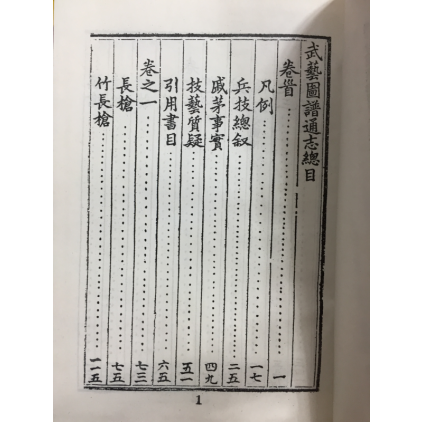 武藝圖譜通志總目
卷首 一
凡例 一七
兵技總叙 二五
戚茅事實 四九
技藝質疑 五一
引用書目 六五
卷之一 七三
長槍 七五
竹長槍 一一五
1